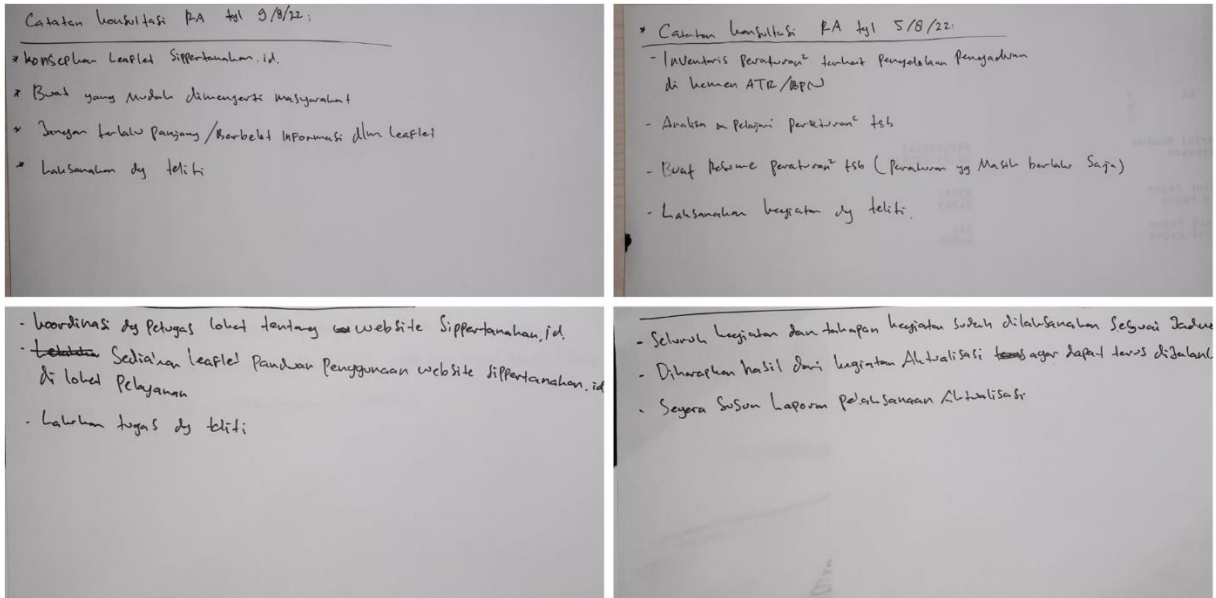 Catatan konsultasi RA tgl 9/8/22:
* konsepkan Leaflet Sippertanahan.id.
* Buat yang mudah dimengerti masyarakat
* Jangan terlalu panjang/berbelit informasi dlm leaflet
* Laksanakan dg teliti
* Catatan konsultasi RA tgl 5/8/22:
- Inventaris peraturan² terkait pengelolaan pengaduan
di kemen ATR/BPN
- Analisa pelajari peraturan² tsb
- Buat Resume peraturan² tsb (peraturan yg masih berlaku saja)
- Laksanakan kegiatan dg teliti.
- koordinasi dg petugas loket tentang website Sippertanahan.id.
- Sediakan leaflet panduan penggunaan website Sippertanahan.id
di loket pelayanan
- Lakukan tugas dg teliti
- Seluruh kegiatan dan tahapan kegiatan sudah dilaksanakan sesuai
- Diharapkan hasil dari kegiatan Aktualisasi agar dapat terus
- Segera susun Laporan pelaksanaan Aktualisasi